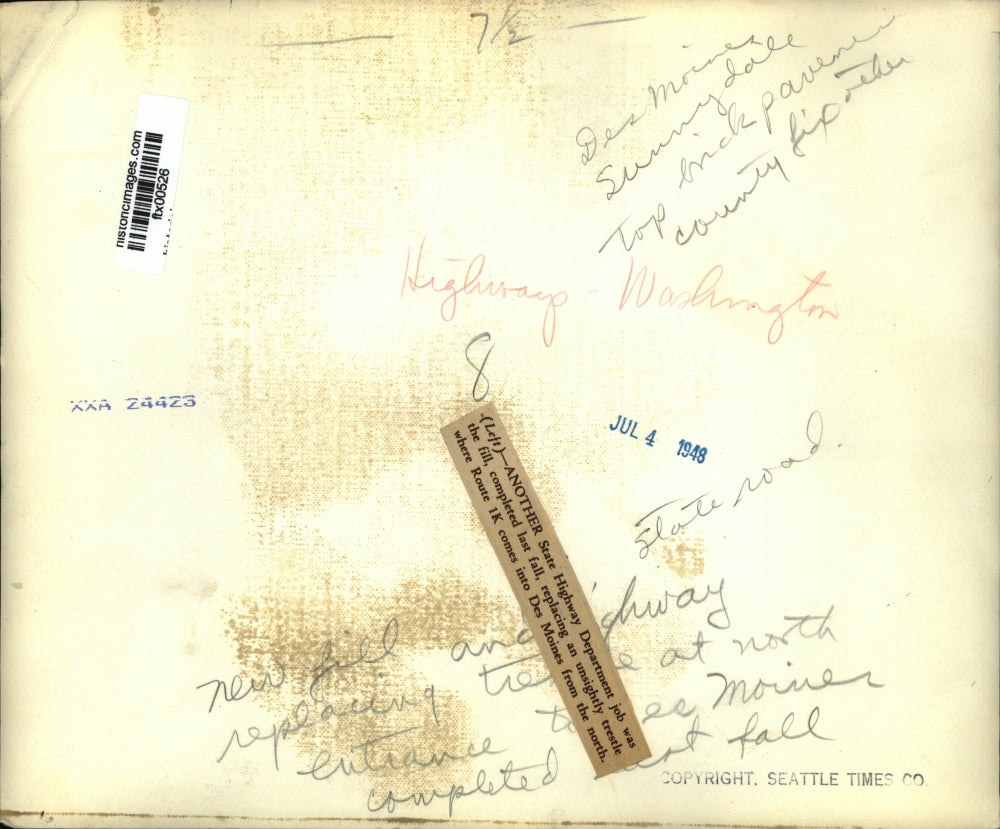 7 1/2
Des Moines
Sunnydale
brick pavemen
Top county fix other
historicimages.com
fbx00526
Highways - Washington
8
XXA 24423
JUL 4 1948
-(Left)—ANOTHER State Highway Department job was
the fill, completed last fall, replacing an unsightly trestle
where Route 1K comes into Des Moines from the north.
State road.
new fill and ghway
replacing tre e at north
entrance to es Moines
completed st fall
COPYRIGHT, SEATTLE TIMES CO.